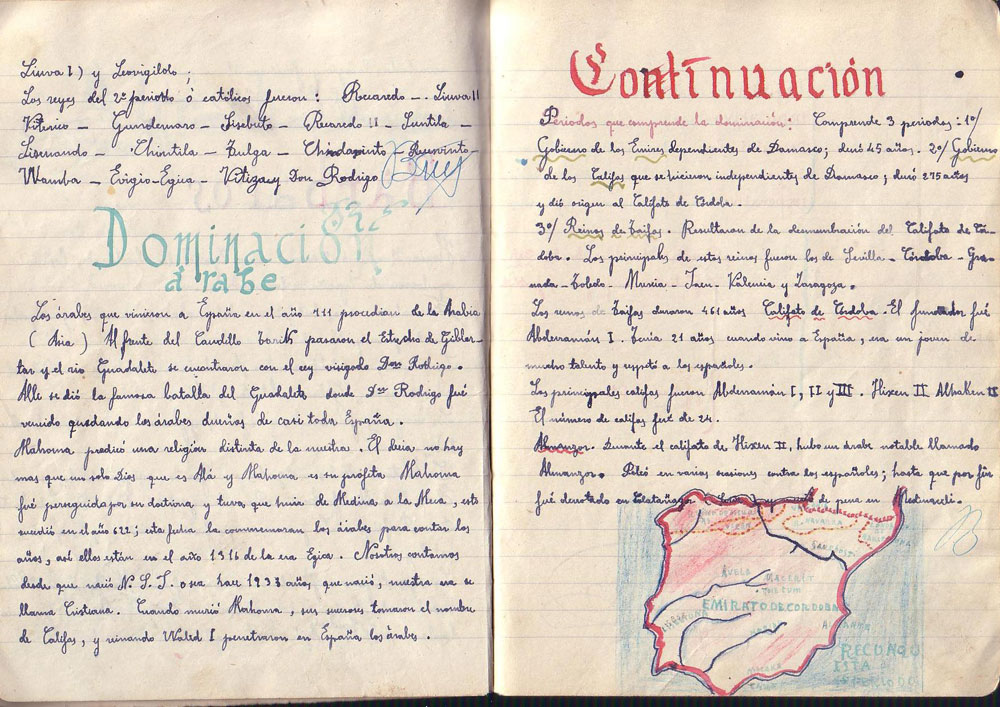 Liuva I) y Leovigildo;
Los reyes del 2º periodo ó católicos fueron: Recaredo -. Liuva II
Viterico - Gundemaro - Sisebuto - Recaredo II - Suntila -
Sisenando - Chintila - Tulga - Chindasvinto - Recesvinto -
Wamba - Evigio - Egica - Vitiza y Don Rodrigo
Dominación
árabe
Los árabes que vinieron a España en el año 711 procedian de la Arabia
(Asia) Al frente del Caudillo Tarik pasaron el Estrecho de Giblar-
tar y el rio Guadalete se encontraron con el rey visigodo Don Rodrigo.
Alli se dió la famosa batalla del Guadalete donde Don Rodrigo fué
vencido quedando los árabes dueños de casi toda España.
Mahoma predicó una religión distinta de la nuestra. El decia no hay
mas que un solo Dios que es Alá y Mahoma es su profeta Mahoma
fué perseguido por su doctrina y tuvo, que huir de Medina a la Meca, esto
sucedió en el año 622; esta fecha la conmemoran los árabes para contar los
años, asi ellos están en el año 1316 de la era Egica. Nosotros contamos
desde que nació N. S. J. o sea hace 1938 años que nació, nuestra era se
llama Cristiana. Cuando murió Mahoma, sus sucesores tomaron el nombre
de Califas, y reinando Walid I penetraron en España los árabes.
Continuación
Periodos que comprende la dominación: Comprende 3 periodos: 1º/
Gobierno de los Emires dependientes de Damasco; duró 45 años. 2º/ Gobierno
de los Califas que se hicieron independientes de Damasco; duró 275 años
y dió origen al Califato de Córdoba.
3º/ Reinos de Taifas. Resultaron de la desmembración del Califato de Cór-
doba. Los principales de estos reinos fueron los de Sevilla - Córdoba - Gra-
nada - Toledo - Murcia - Jaen - Valencia y Zaragoza.
Los reinos de Taifas duraron 461 años Califato de Córdoba. El fundador fué
Abderramán I. Tenia 21 años cuando vino a España, era un joven de
mucho talento y respetó a los españoles.
Los principales califas fueron Abderramán I, II y III. Hixen II Alhaken II
El número de califas fué de 24.
Almanzor. Durante el califato de Hixen II, hubo un árabe notable llamado
Almanzor. Peleó en varias ocasiones contra los españoles; hasta que por fin
fué derrotado en Calatañazor de pena en Medinaceli.
NAVARRA
AVELA MAGERIT
TOLETUM
EMIRATO DE CORDOBA
RECONQU
ISTA
PERIODO